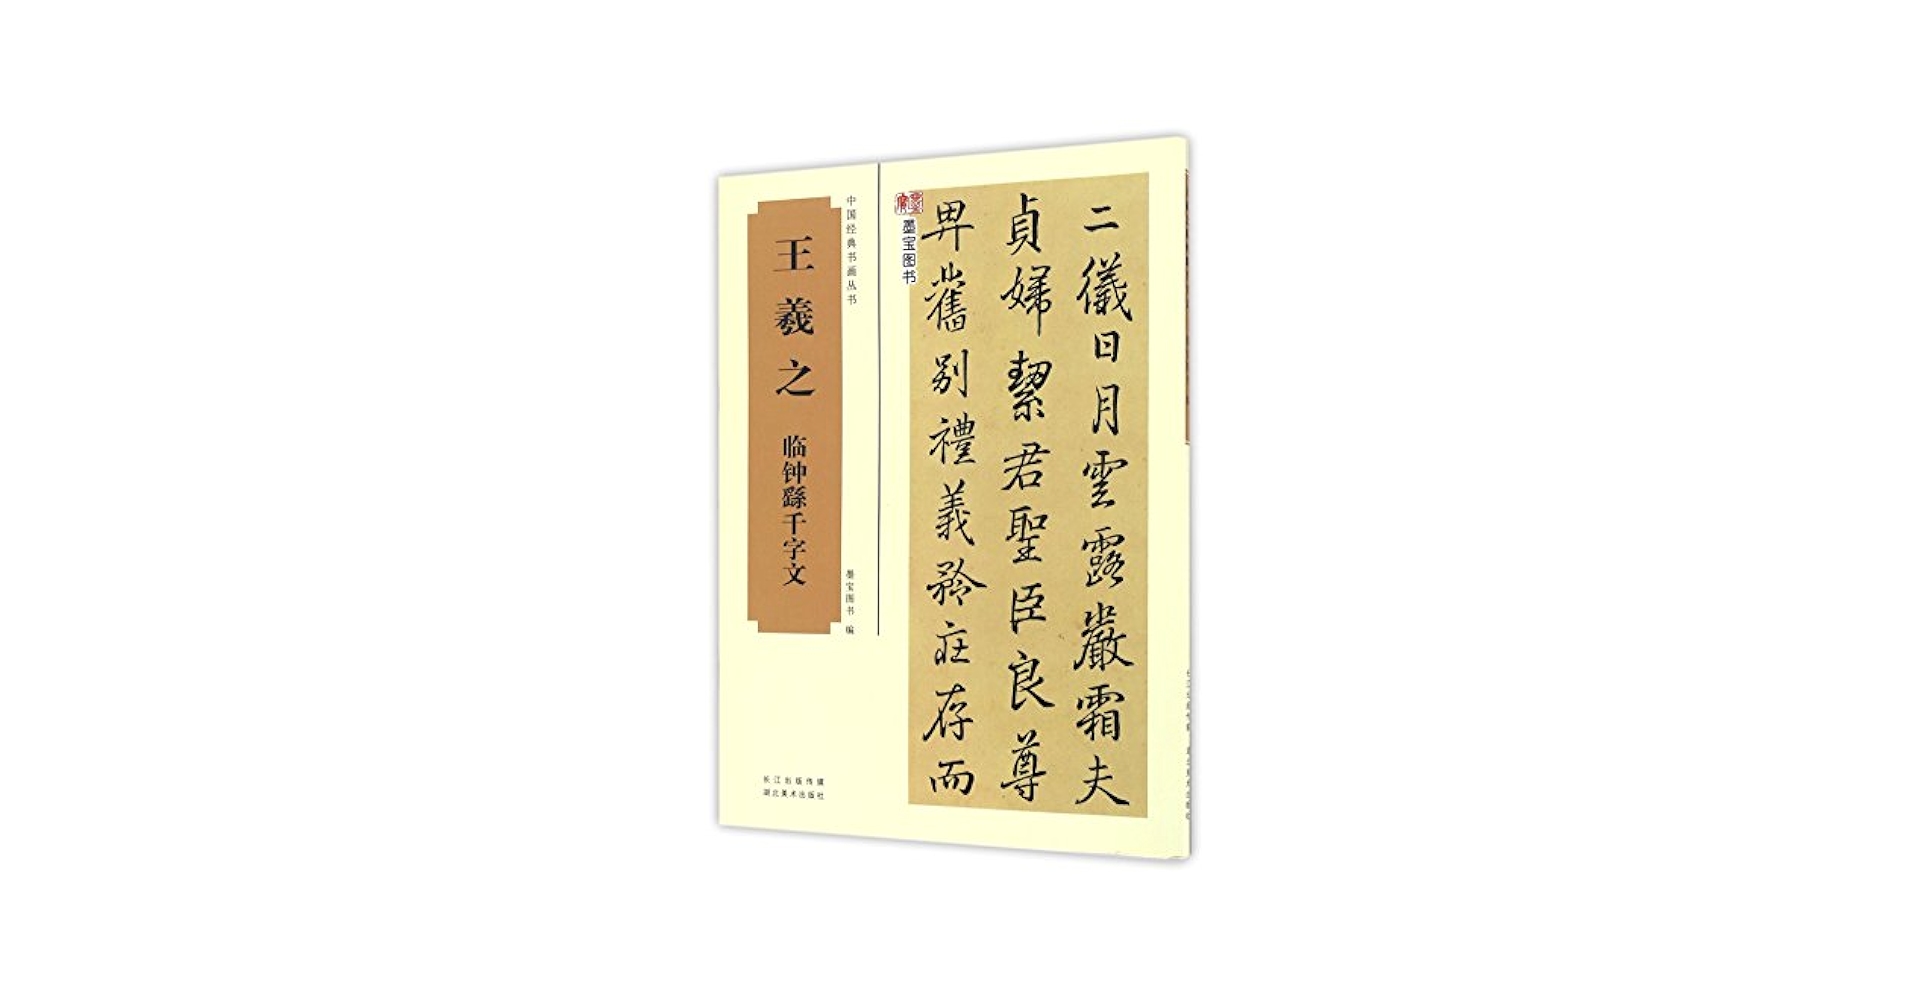 王羲之
临钟繇千字文
中国经典书画丛书
墨宝图书 编
长江出版传媒
湖北美术出版社
墨宝图书
二儀日月雲露嚴霜夫
貞婦絜君聖臣良尊
卑舊別禮義矜莊存而